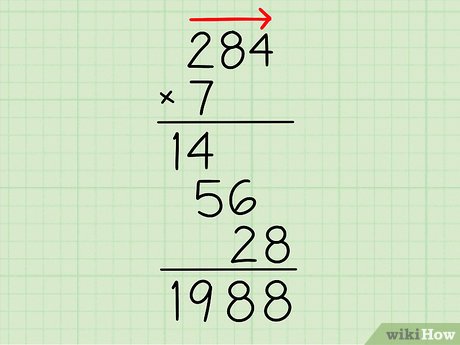 284
× 7
14
56
28
1988
wikiHow